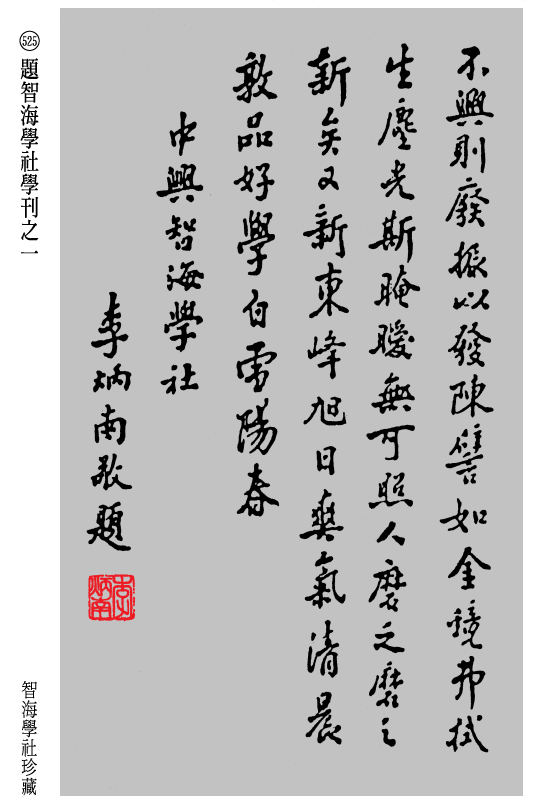 不興則廢振以發陳譬如金鏡弗拭
生塵光斯晻曖無可照人磨之磨之
新矣又新東峰旭日爽氣清晨
敦品好學白雪陽春
中興智海學社
李炳南敬題
李炳南
525 題智海學社學刊之一
智海學社珍藏